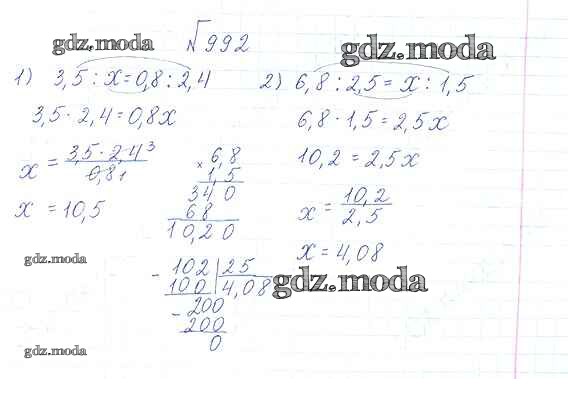 gdz.moda √992 gdz.moda
1) 3,5 : x = 0,8 : 2,4
3,5 · 2,4 = 0,8x
x = 3,5 · 2,4 3 / 0,8 1
x = 10,5
× 6,8
1,5
340
68
10,20
- 102 | 25
100 | 4,08
- 200
200
0
2) 6,8 : 2,5 = x : 1,5
6,8 · 1,5 = 2,5x
10,2 = 2,5x
x = 10,2 / 2,5
x = 4,08
gdz.moda
gdz.moda
gdz.moda